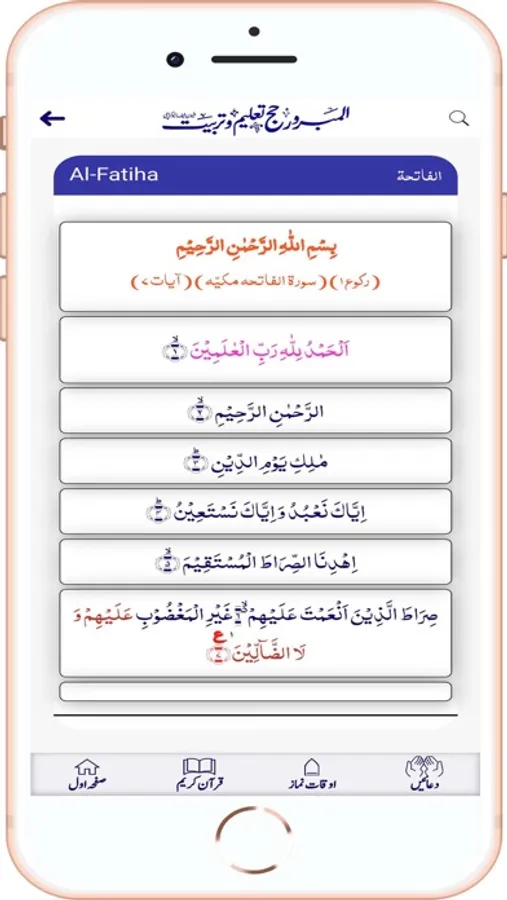 المبرور حج تعلیم و تربیت
Al-Fatiha
الفاتحة
بِسْمِ اللّٰهِ الرَّحْمٰنِ الرَّحِيْمِ
(رکوع ۱) (سورة الفاتحه مكيّه) (آيات ۷)
اَلْحَمْدُ لِلّٰهِ رَبِّ الْعٰلَمِيْنَ ۙ﴿۱﴾
الرَّحْمٰنِ الرَّحِيْمِ ۙ﴿۲﴾
مٰلِكِ يَوْمِ الدِّيْنِ ؕ﴿۳﴾
اِيَّاكَ نَعْبُدُ وَ اِيَّاكَ نَسْتَعِيْنُ ؕ﴿۴﴾
اِهْدِنَا الصِّرَاطَ الْمُسْتَقِيْمَ ۙ﴿۵﴾
صِرَاطَ الَّذِيْنَ اَنْعَمْتَ عَلَيْهِمْ ۙ۬ۦ غَيْرِ الْمَغْضُوْبِ عَلَيْهِمْ وَ
لَا الضَّآلِّيْنَ ﴿۷﴾ ع
صفحہ اول
قرآن کریم
اوقات نماز
دعائیں